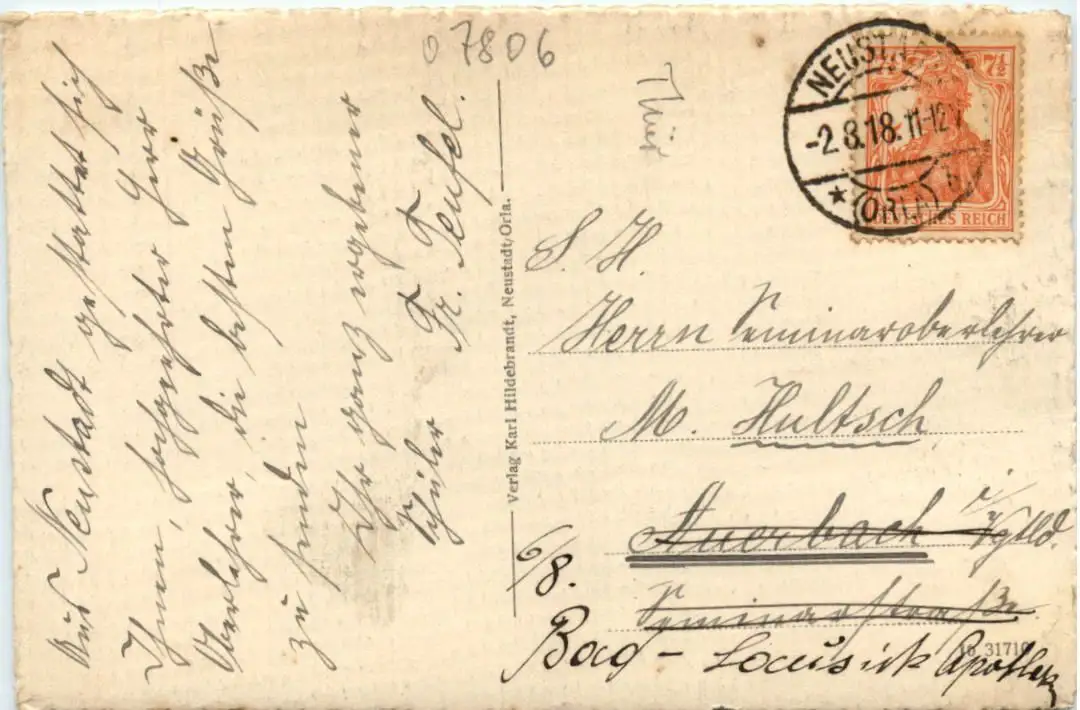 07806
Thür
Aus Neustadt gestattet sich
Ihnen, hochgeehrter Herr
Oberlehrer, die besten Grüße
zu senden
Ihr ganz ergebener
Schüler Fr. Teufel.
Verlag Karl Hildebrandt, Neustadt, Orla.
NEUST
-2.8.18.11-12V
* (ORLA) b
7½
S REICH
S. H.
Herrn Seminaroberlehrer
M. Hultsch
Auerbach i/Vgtld.
Seminarstraße
6/8.
Bad- Apotheke
16 31719